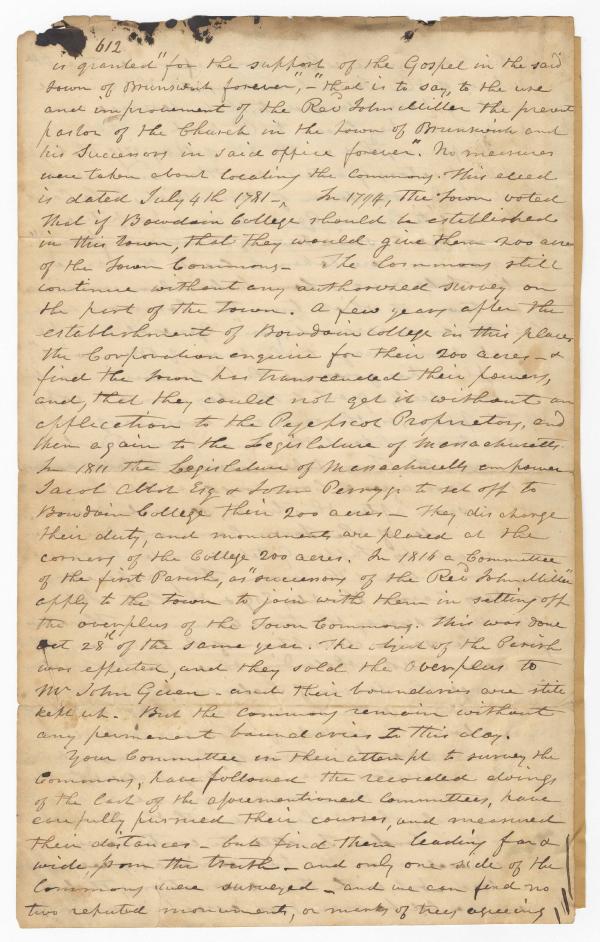 612
is granted "for the support of the Gospel in the said
town of Brunswick forever", - "that is to say, to the use
and improvement of the Revd John Miller the present
pastor of the Church in the town of Brunswick and
his Successors in said office forever". No measures
were taken about locating the commons. This deed
is dated July 4th 1781 - In 1794, the Town voted
that if Bowdoin College should be established
in this town, that they would give them 200 acres
of the Town Commons - The Commons still
continue without any authorised survey on
the part of the town. A few years after the
establishment of Bowdoin College in this place,
the Corporation enquire for their 200 acres - &
find the town has transcended their powers,
and, that they could not get it without an
application to the Pejepscot Proprietors, and
then again to the Legislature of Massachusetts.
In 1811 the Legislature of Massachusetts empower
Jacob Abbot Esq & John Perry jr to set off to
Bowdoin College their 200 acres - they discharge
their duty, and monuments are placed at the
corners of the College 200 acres. In 1816 a Committee
of the first Parish, as "successors of the Revd John Miller"
apply to the town to join with them in setting off
the overplus of the Town Commons. This was done
oct 28th of the same year. The object of the Parish
was effected, and they sold the overplus to
Mr John Given - and their boundaries are still
kept up. But the commons remain without
any permanent boundaries to this day.
Your Committee in their attempt to survey the
Commons, have followed the recorded doings
of the last of the aforementioned Committees, have
carefully pursued their courses, and measured
their distances - but find them leading far &
wide from the truth - and only one side of the
Commons were surveyed - and we can find no
two reputed monuments, or marks of trees, agreeing